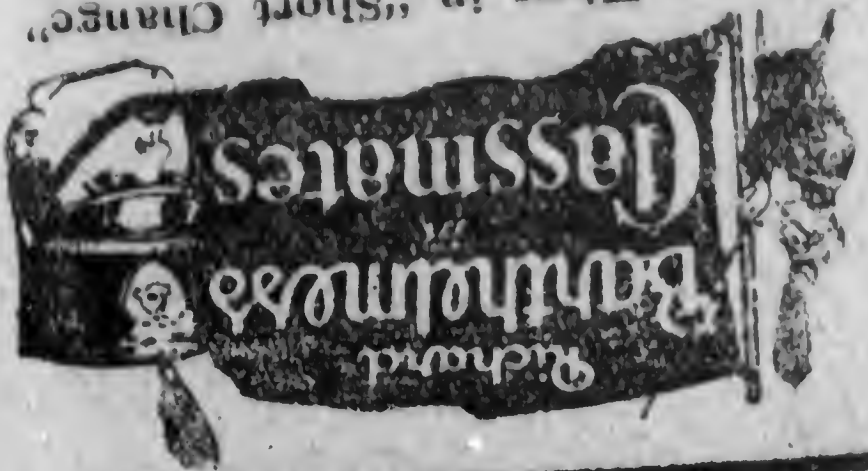 Richard
Barthelmess
Classmates
in "Short Change"